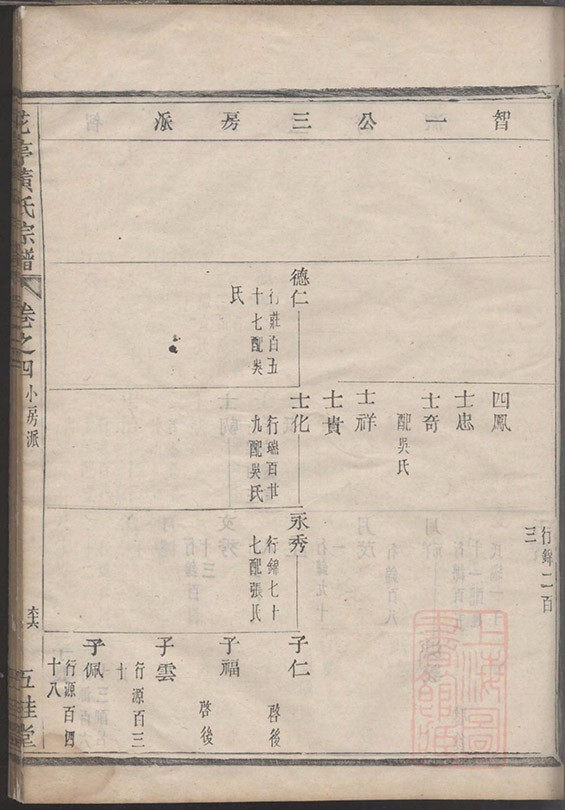 智一公三房派
四鳳
士忠
士奇
配吳氏
士祥
士貴
士化
行瑞百廿
九配吳氏
德仁
行莊百五
十七配吳
氏
行錦二百
三
永秀
行錦七十
七配張氏
子仁
啓後
子福
啓後
子雲
行源百三
十
子佩
行源百四
十八
花亭黃氏宗譜
卷之四
小房派
五桂堂
上海圖書館藏